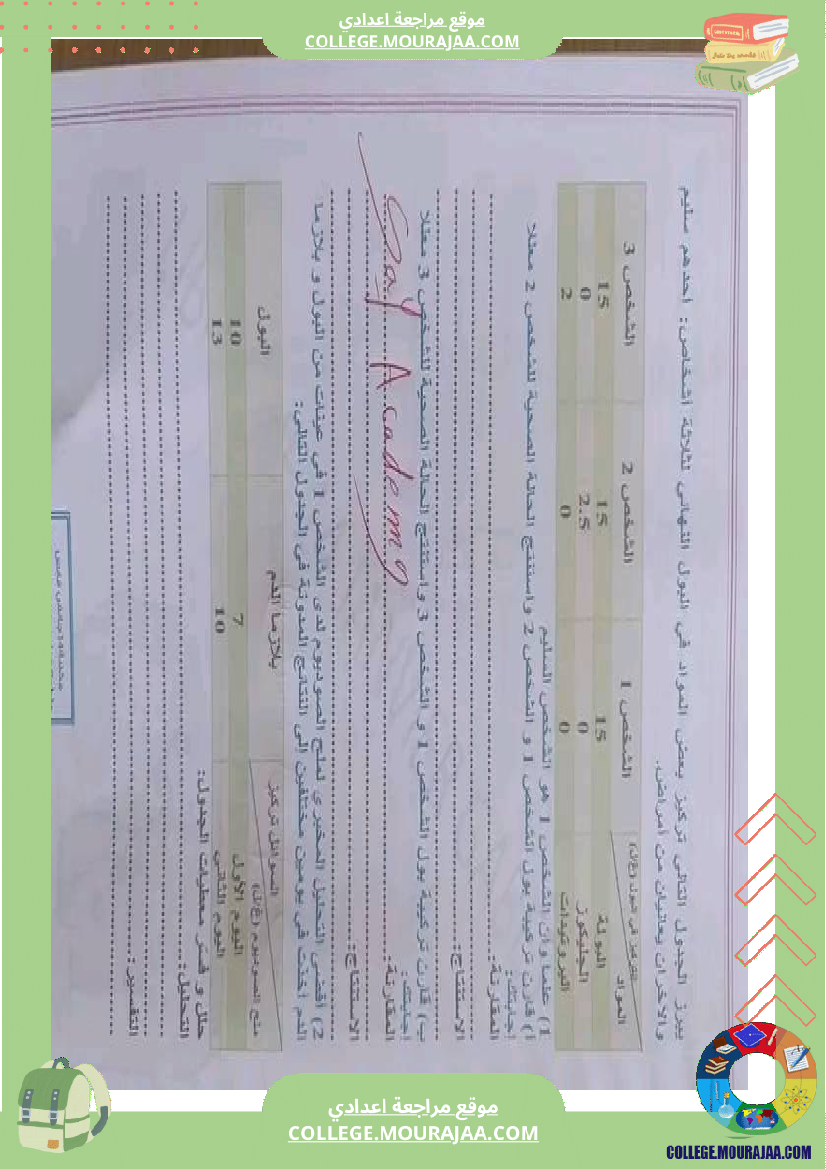 موقع مراجعة اعدادي
COLLEGE.MOURAJAA.COM
يبرز الجدول التالي تركيز بعض المواد في البول النهائي لثلاثة أشخاص: أحدهم سليم
والآخران يعانيان من أمراض.
التركيز في البول (غ/ل) المواد الشخص 1 الشخص 2 الشخص 3
البولة 15 15 15
الجليكوز 0 2.5 0
البروتيدات 0 0 2
1) علما وأن الشخص 1 هو الشخص السليم
أ) قارن تركيبة بول الشخص 1 و الشخص 2 واستنتج الحالة الصحية للشخص 2 معللا
إجابتك:
المقارنة:
الاستنتاج:
ب) قارن تركيبة بول الشخص 1 و الشخص 3 واستنتج الحالة الصحية للشخص 3 معللا
إجابتك:
المقارنة:
Academy
الاستنتاج:
2) أفضى التحليل المخبري لملح الصوديوم لدى الشخص 1 في عينات من البول و بلازما
الدم أخذت في يومين مختلفين إلى النتائج المدونة في الجدول التالي:
السوائل تركيز ملح الصوديوم (غ/ل) بلازما الدم البول
اليوم الأول 7 10
اليوم الثاني 10 13
حلل و فسر معطيات الجدول:
التحليل:
التفسير:
موقع مراجعة اعدادي
COLLEGE.MOURAJAA.COM
COLLEGE.MOURAJAA.COM